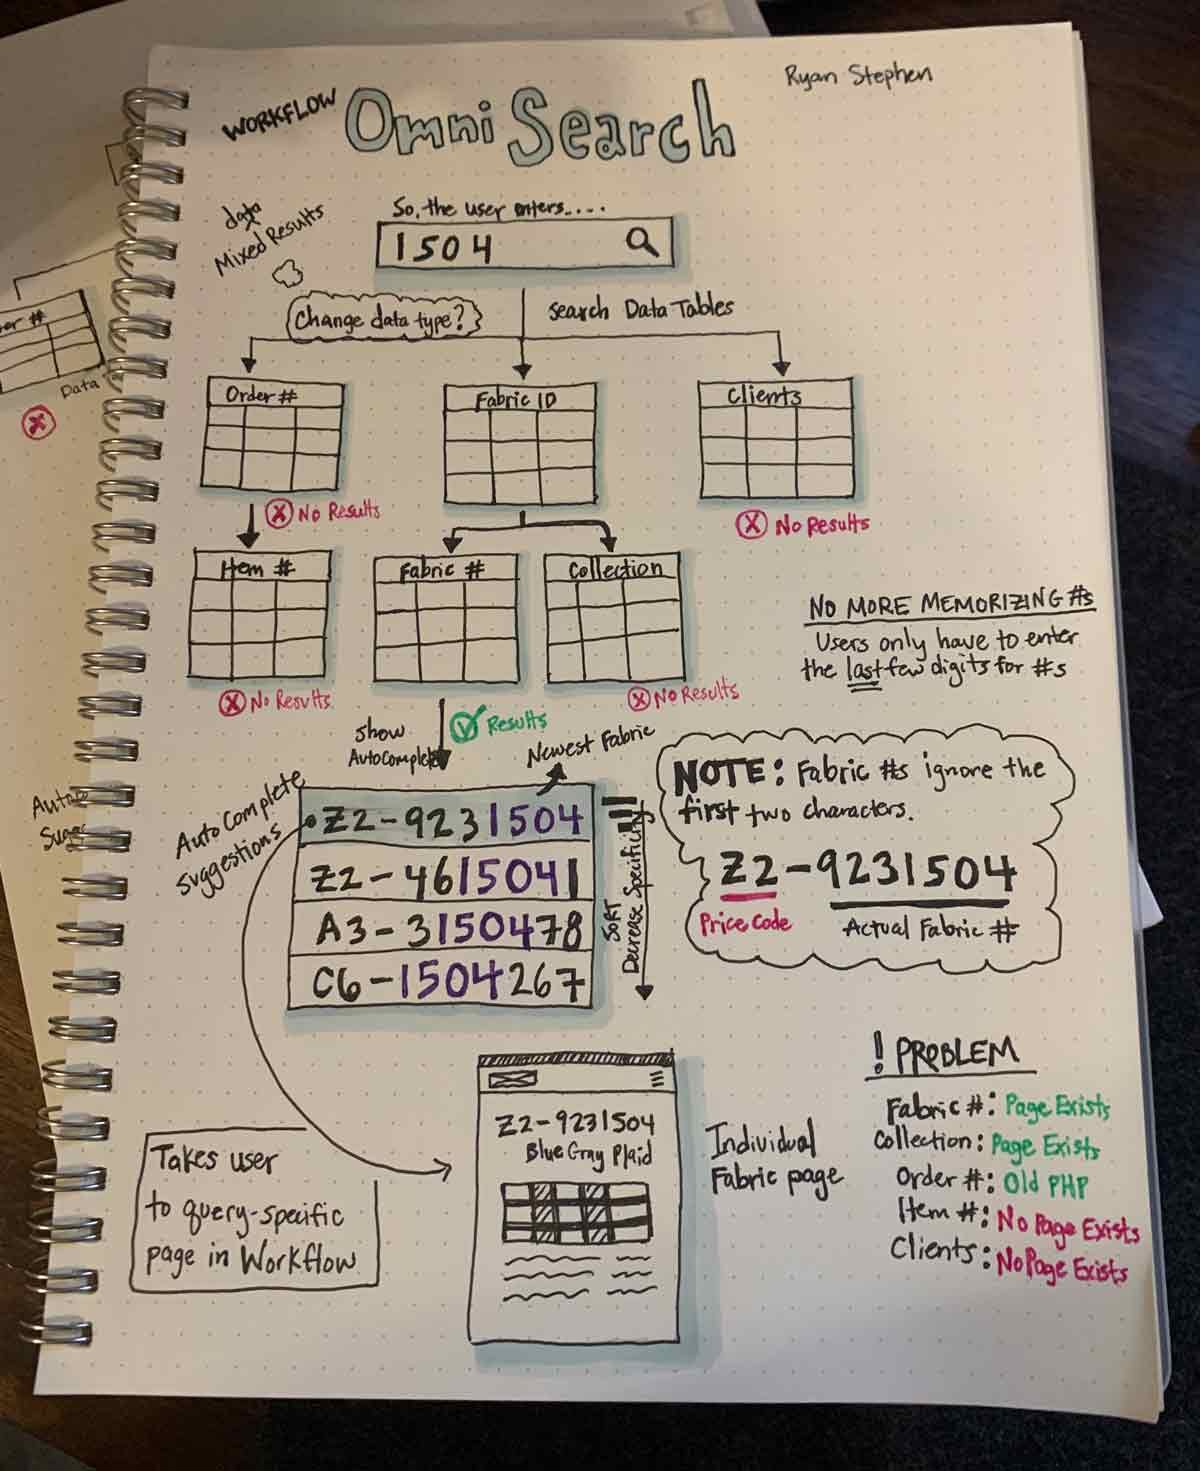 Ryan Stephen
WORKFLOW
Omni Search
So, the user enters....
1504
data
Mixed Results
Change data type?
Search Data Tables
Order #
Fabric ID
Clients
No Results
No Results
Item #
Fabric #
Collection
No Results
Results
No Results
NO MORE MEMORIZING #s
Users only have to enter
the last few digits for #s
Show
AutoComplete
Newest Fabric
AutoComplete
Suggestions
Z2-9231504
Z2-4615041
A3-3150478
C6-1504267
SORT
Decrease Specificity
NOTE: Fabric #s ignore the
first two characters.
Z2-9231504
Price Code
Actual Fabric #
Takes user
to query-specific
page in Workflow
Z2-9231504
Blue Gray Plaid
Individual
Fabric page
! PROBLEM
Fabric #: Page Exists
Collection: Page Exists
Order #: Old PHP
Item #: No Page Exists
Clients: No Page Exists
Data